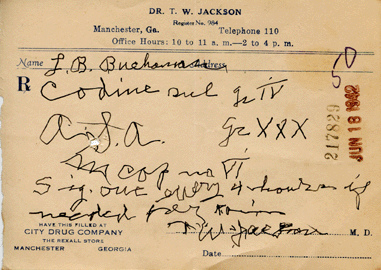 DR. T. W. JACKSON
Register No. 984
Manchester, Ga. Telephone 110
Office Hours: 10 to 11 a. m.—2 to 4 p. m.
Name L. B. Buchanan Address
R Codine sul gr IV
A. S. A. gr XXX
M cap no VI
Sig. one every 4 hours if
needed for pain
T W Jackson M. D.
HAVE THIS FILLED AT
CITY DRUG COMPANY
THE REXALL STORE
MANCHESTER GEORGIA
Date
217829
JUN 18 1942